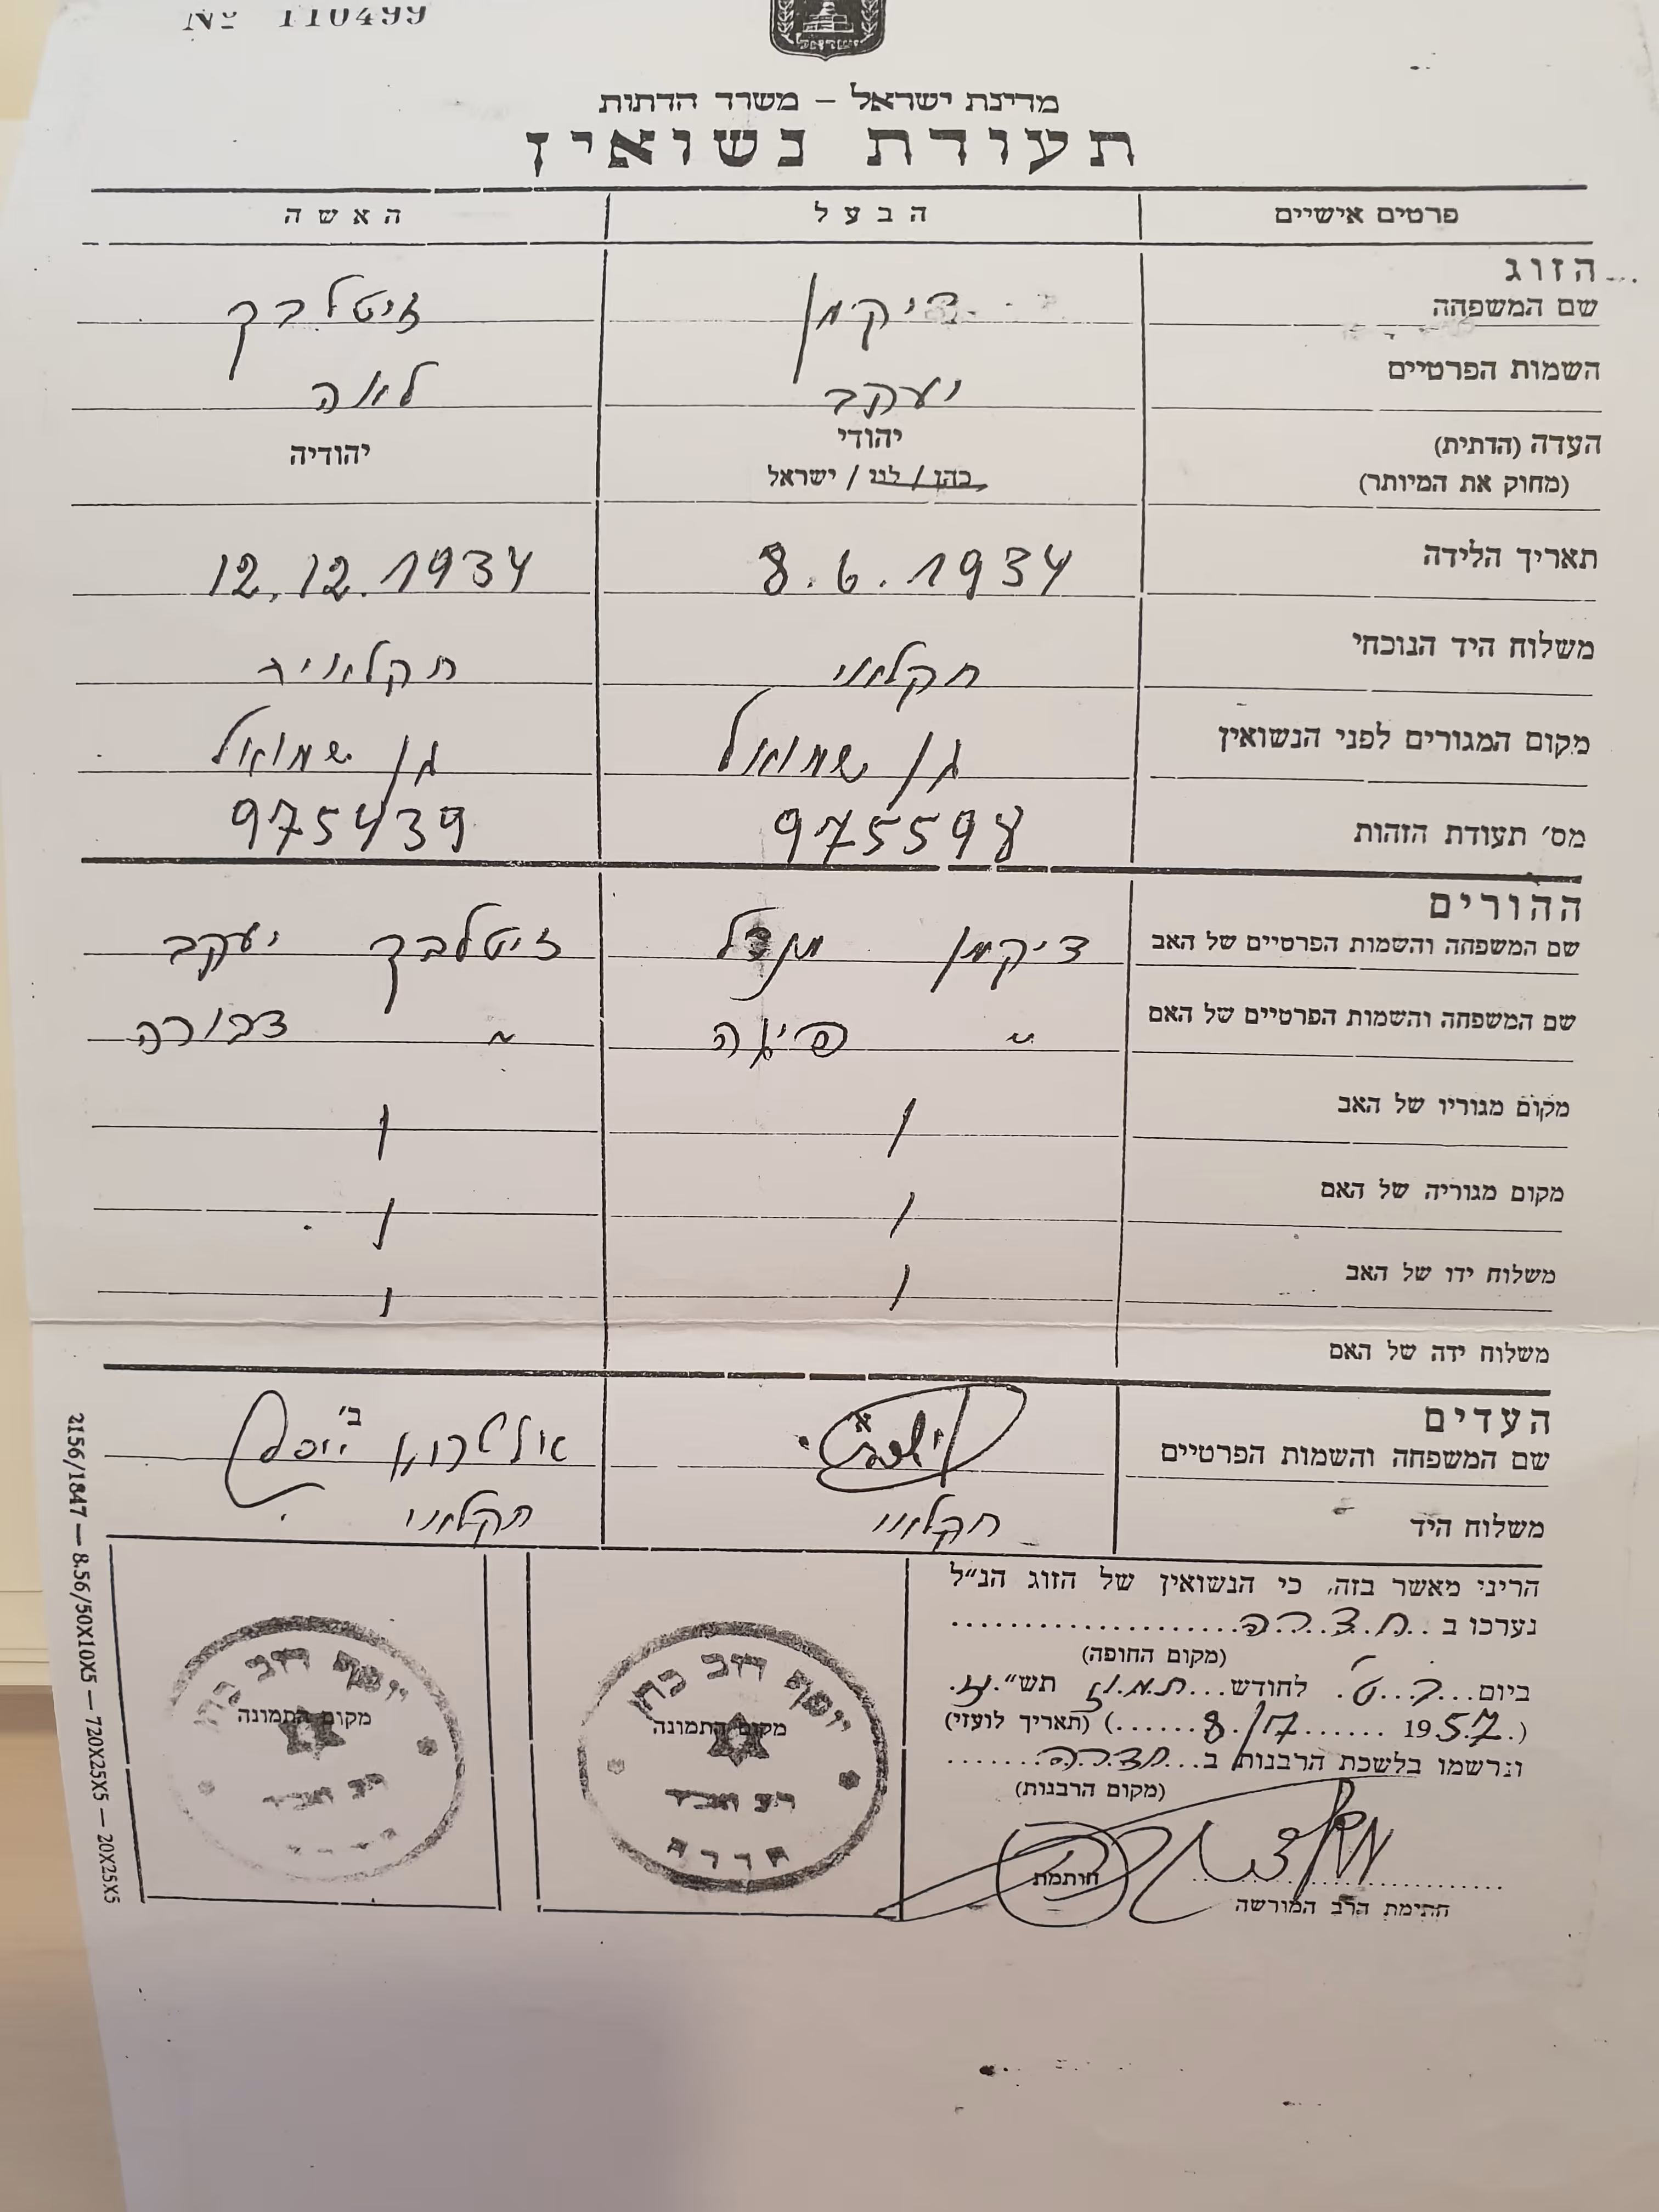 № 110499
ישראל
מדינת ישראל – משרד הדתות
תעודת נשואין
פרטים אישיים הבעל האשה
הזוג
שם המשפחה דיקמן זיטלבך
השמות הפרטיים יעקב לאה
העדה (הדתית) יהודי יהודיה
(מחוק את המיותר) כהן / לוי / ישראל
תאריך הלידה 8.6.1934 12.12.1934
משלוח היד הנוכחי חקלאי חקלאית
מקום המגורים לפני הנשואין גן שמואל גן שמואל
מס׳ תעודת הזהות 975598 975439
ההורים
שם המשפחה והשמות הפרטיים של האב דיקמן מנדל זיטלבך יעקב
שם המשפחה והשמות הפרטיים של האם " פיגה " דבורה
מקום מגוריו של האב
מקום מגוריה של האם
משלוח ידו של האב
משלוח ידה של האם
העדים
שם המשפחה והשמות הפרטיים א ב׳ יוסף
משלוח היד חקלאי חקלאי
הריני מאשר בזה, כי הנשואין של הזוג הנ״ל
נערכו ב חדרה
(מקום החופה)
ביום ט לחודש תמוז תש״יז
(1957 8/7) (תאריך לועזי)
ונרשמו בלשכת הרבנות ב חדרה
(מקום הרבנות)
חותמת
חתימת הרב המורשה
יוסף דוב כהן
מקום התמונה
רב ואב״ד
חדרה
יוסף דוב כהן
מקום התמונה
רב ואב״ד
2156/1847 — 8.56/50X100X5 — 720X25X5 — 20X25X5